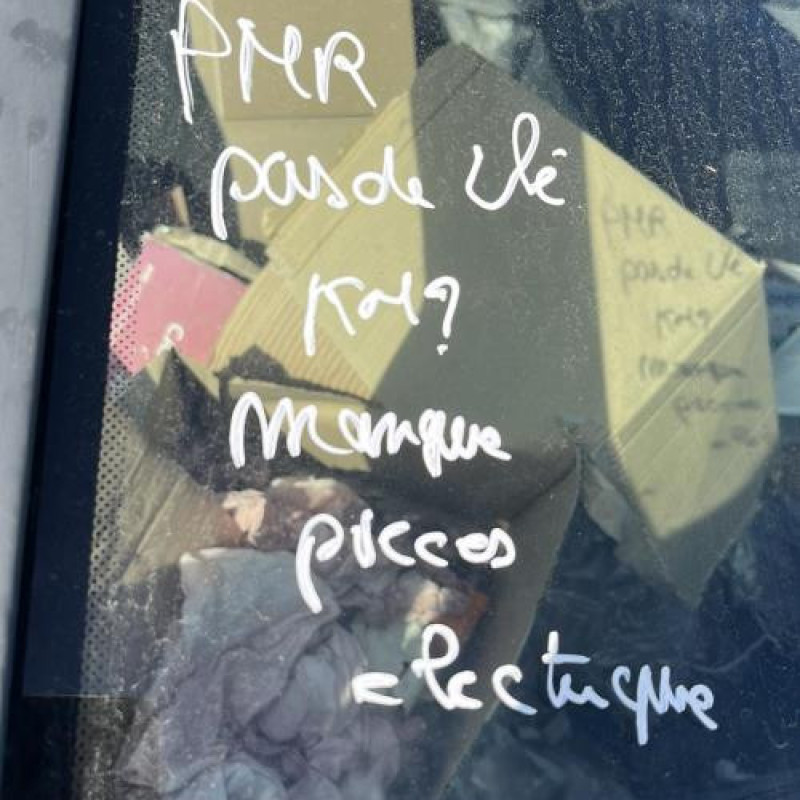 PMR
pas de clé
KM?
manque
pieces
electrique